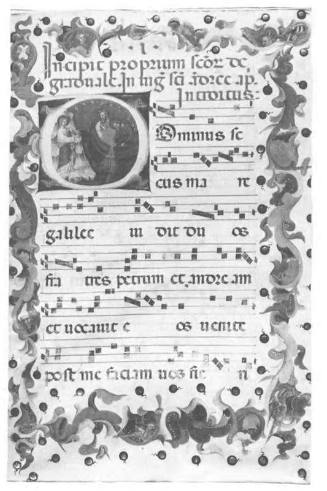 Incipit proprium scōr de
graduale. In uig̃ sc̄i ādree ap.
Introitus:
Ominus se
cus ma re
galilee ui dit du os
fra tres petrum et andre am
et uocauit e os uenite
post me faciam uos fie ri